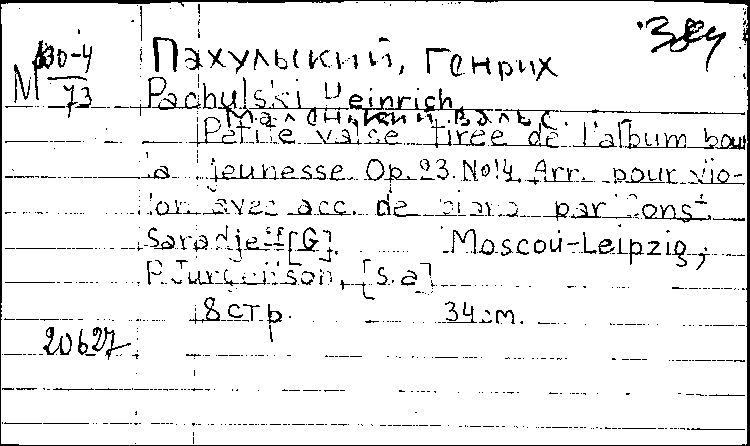 384
М 130-4
73
Пахульский, Генрих
Pachulski Heinrich
Маленький вальс.
Petite valse tirée de l'album pour
la jeunesse Op. 23. No 14. Arr. pour vio-
lon avec acc. de piano par Const
Saradjeff [G]. Moscou-Leipzig,
P. Jurgenson, [s.a]
8 стр. 34 cm.
20627